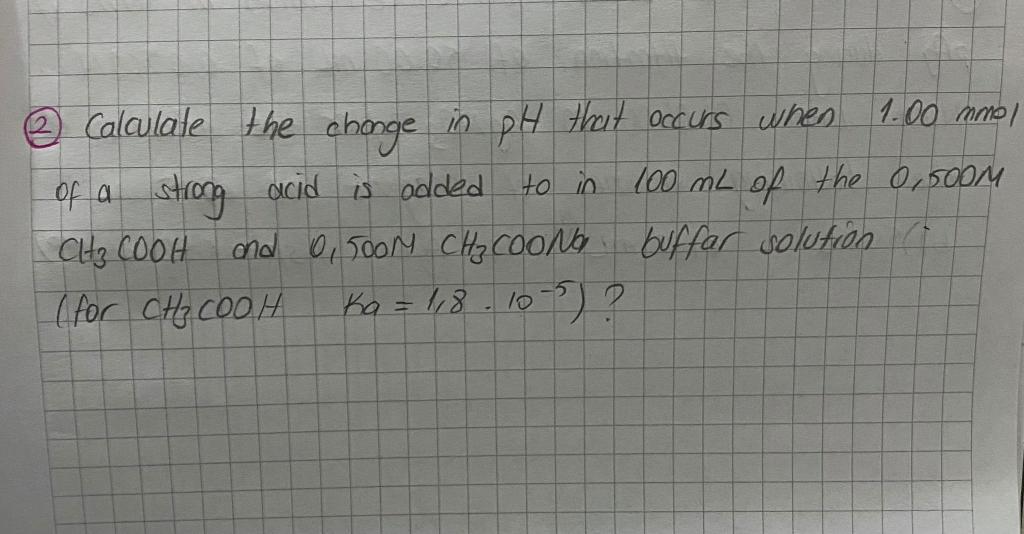 2 Calculate the change in pH that occurs when 1.00 mmol
of a strong acid is added to in 100 mL of the 0,500M
CH3COOH and 0,500M CH3COONa buffar solution
(for CH3COOH Ka = 1,8 . 10-5) ?